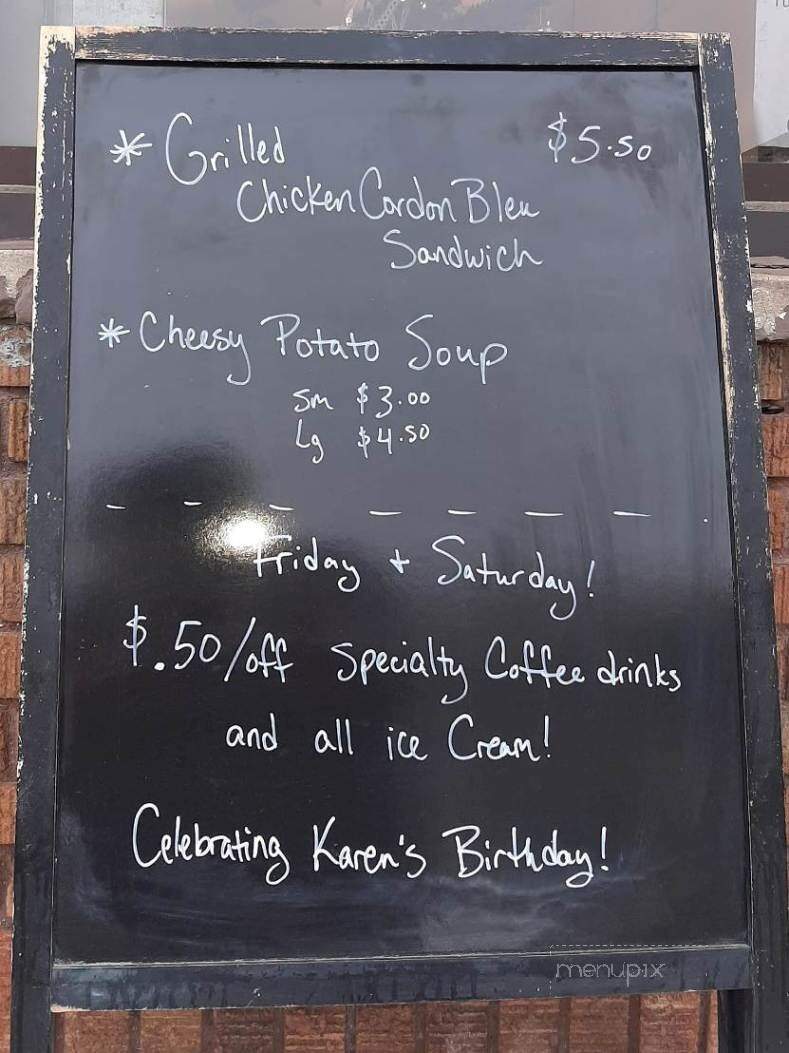 * Grilled $5.50
Chicken Cordon Bleu
Sandwich
* Cheesy Potato Soup
Sm $3.00
Lg $4.50
Friday + Saturday!
$.50/off Specialty Coffee drinks
and all ice Cream!
Celebrating Karen's Birthday!
menupix